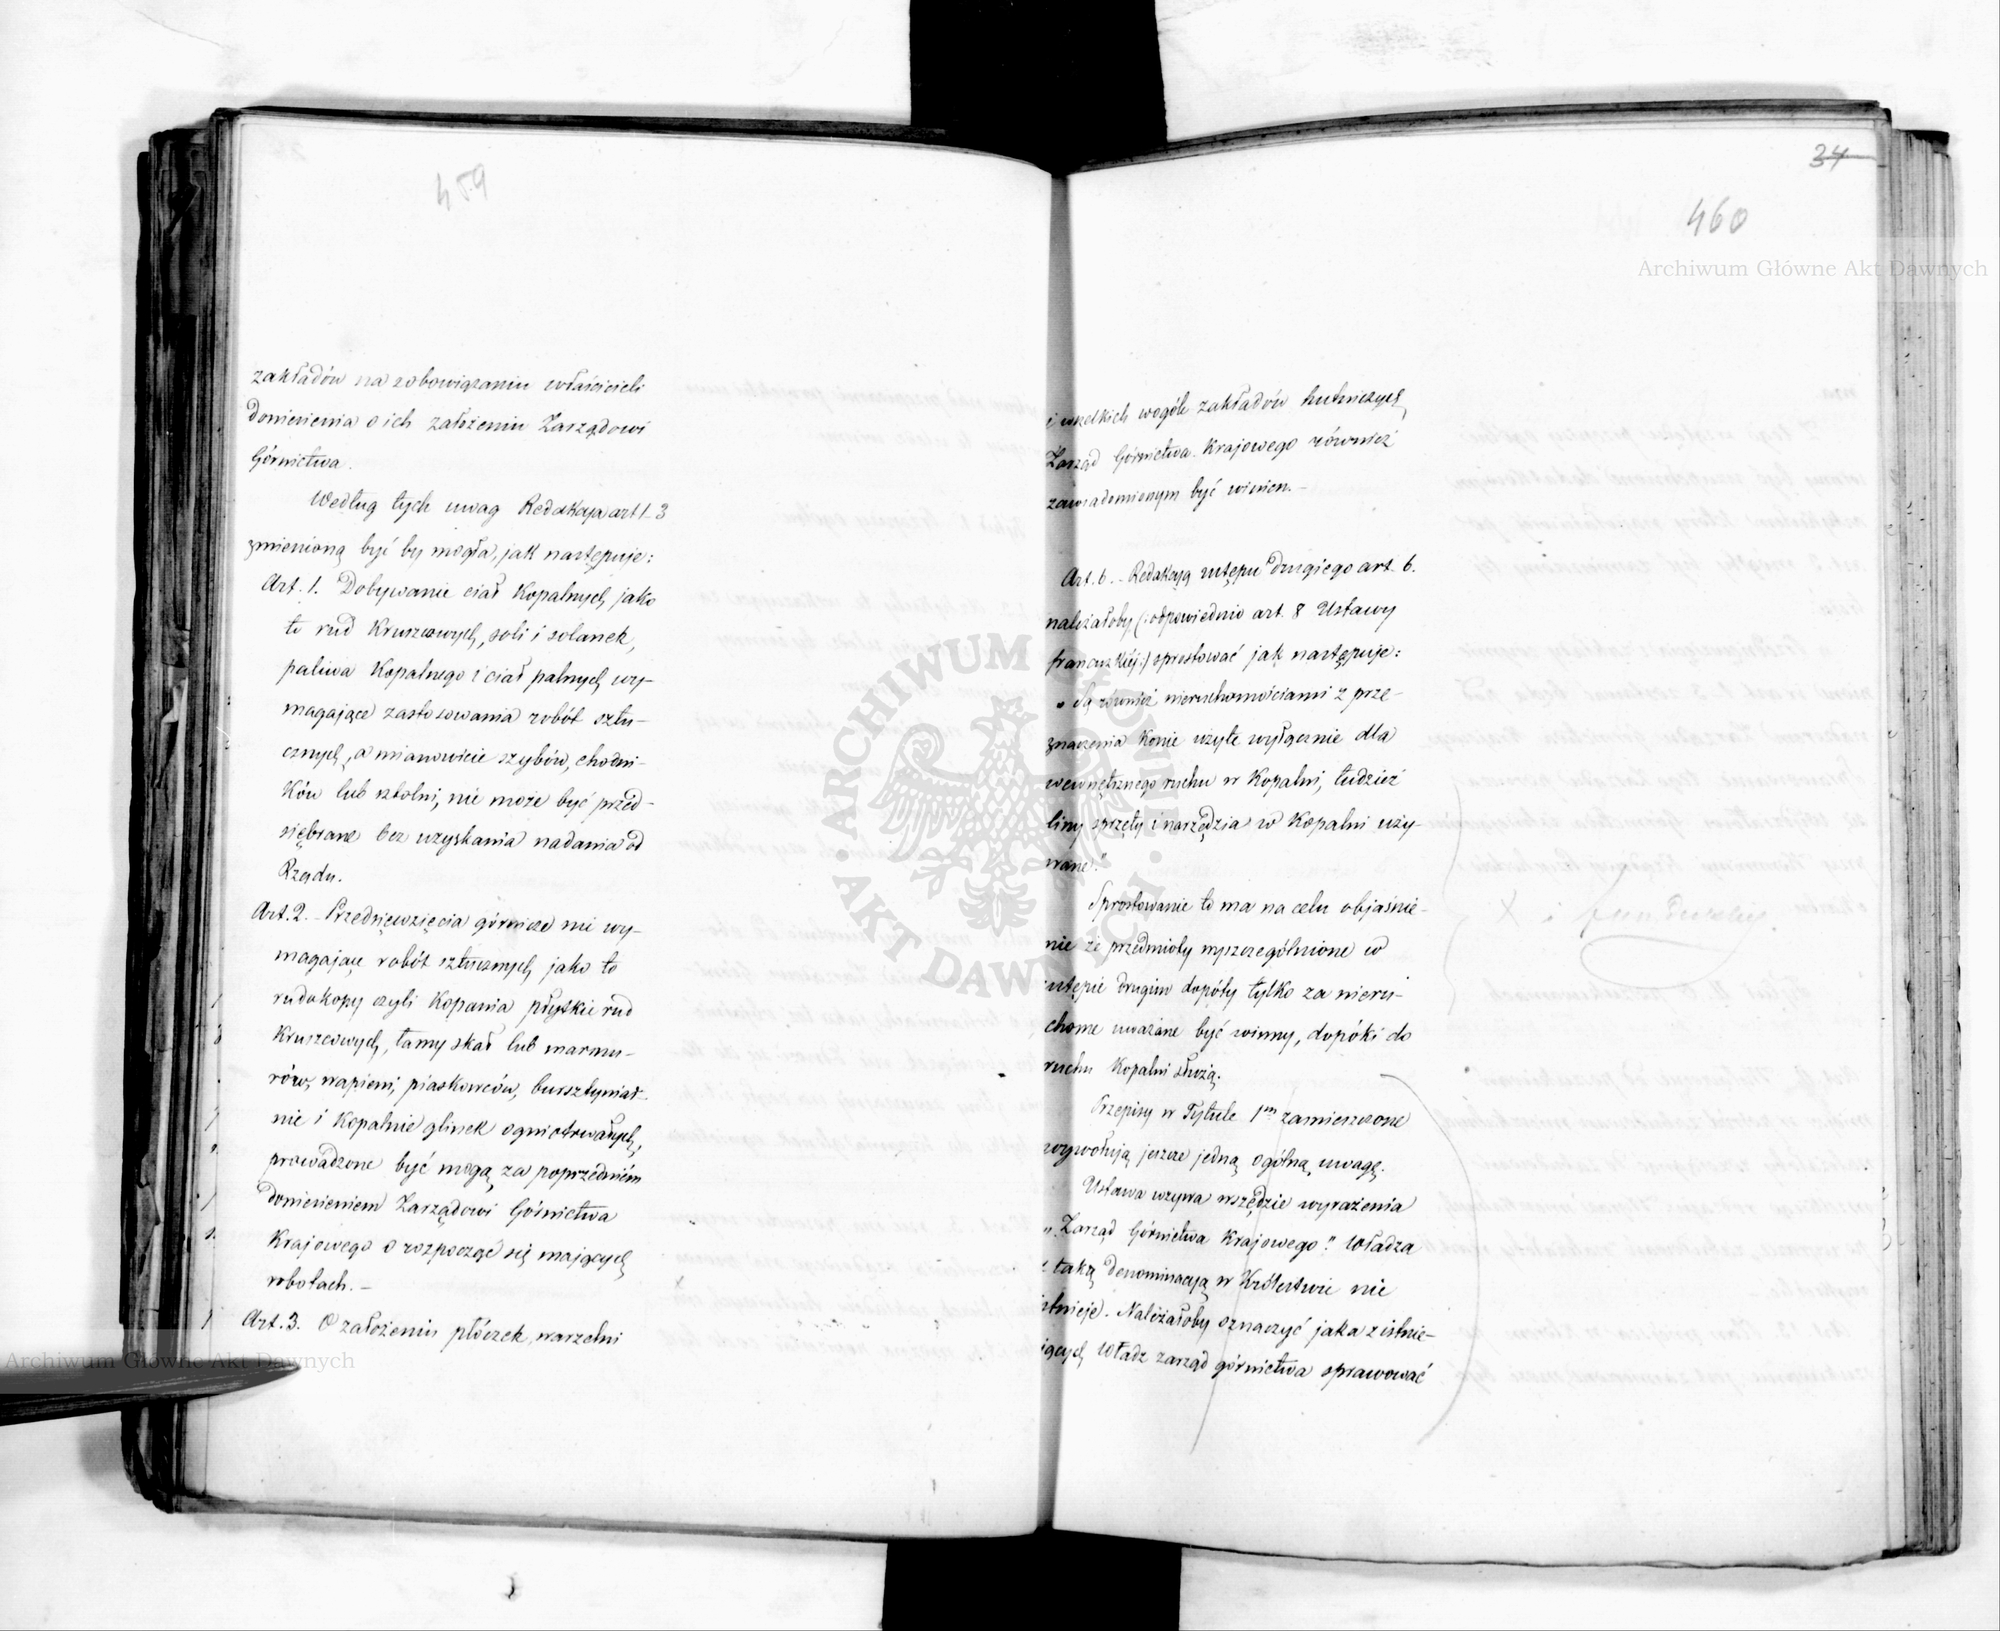 459
zakładów na zobowiązaniu właścicieli
doniesienia o ich założeniu Zarządowi
Górnictwa.
Według tych uwag Redakcya art 1-3
zmienioną być by mogła, jak następuje:
Art. 1. Dobywanie ciał Kopalnych jako
to rud Kruszcowych, soli i solanek,
paliwa Kopalnego i ciał palnych wy-
magające zastosowania robót sztu-
cznych, a mianowicie szybów, chodni-
ków lub sztolni, nie może być przed-
siębrane bez uzyskania nadania od
Rządu.
Art. 2. - Przedsięwzięcia górnicze nie wy-
magające robót sztucznych jako to
rudokopy czyli Kopania płytkie rud
Kruszcowych, łamy skał lub marmu-
rów, wapieni, piaskowców, bursztyniar-
nie i Kopalnie glinek ogniotrwałych,
prowadzone być mogą za poprzedniém
doniesieniem Zarządowi Górnictwa
Krajowego o rozpocząć się mających
robotach. -
Art. 3. O założeniu płóczek, warzelni
34
460
i wszelkich wogóle zakładów hutniczych
Zarząd Górnictwa Krajowego również
zawiadomionym być winien. -
Art. 6. - Redakcyą ustępu drugiego art. 6.
należałoby (: odpowiednio art. 8 Ustawy
francuzkiéj :) sprostować jak następuje:
„Są również nieruchomościami z prze-
znaczenia Konie użyte wyłącznie dla
wewnętrznego ruchu w Kopalni, tudzież
liny sprzęty i narzędzia w Kopalni uży-
wane."
Sprostowanie to ma na celu objaśnie-
nie że przedmioty wyszczególnione w
ustępie drugim dopóty tylko za nieru-
chome uważane być winny, dopóki do
ruchu Kopalni służą.
Przepisy w Tytule 1m zamieszczone
wywołują jeszcze jedną ogólną uwagę.
Ustawa używa wszędzie wyrażenia
„Zarząd Górnictwa Krajowego." Władza
z taką denominacyą w Królestwie nie
istnieje. Należałoby oznaczyć jaka z istnie-
jących Władz zarząd górnictwa sprawować
ARCHIWUM CYFROWE
AKT DAWNYCH
Archiwum Główne Akt Dawnych
Archiwum Główne Akt Dawnych